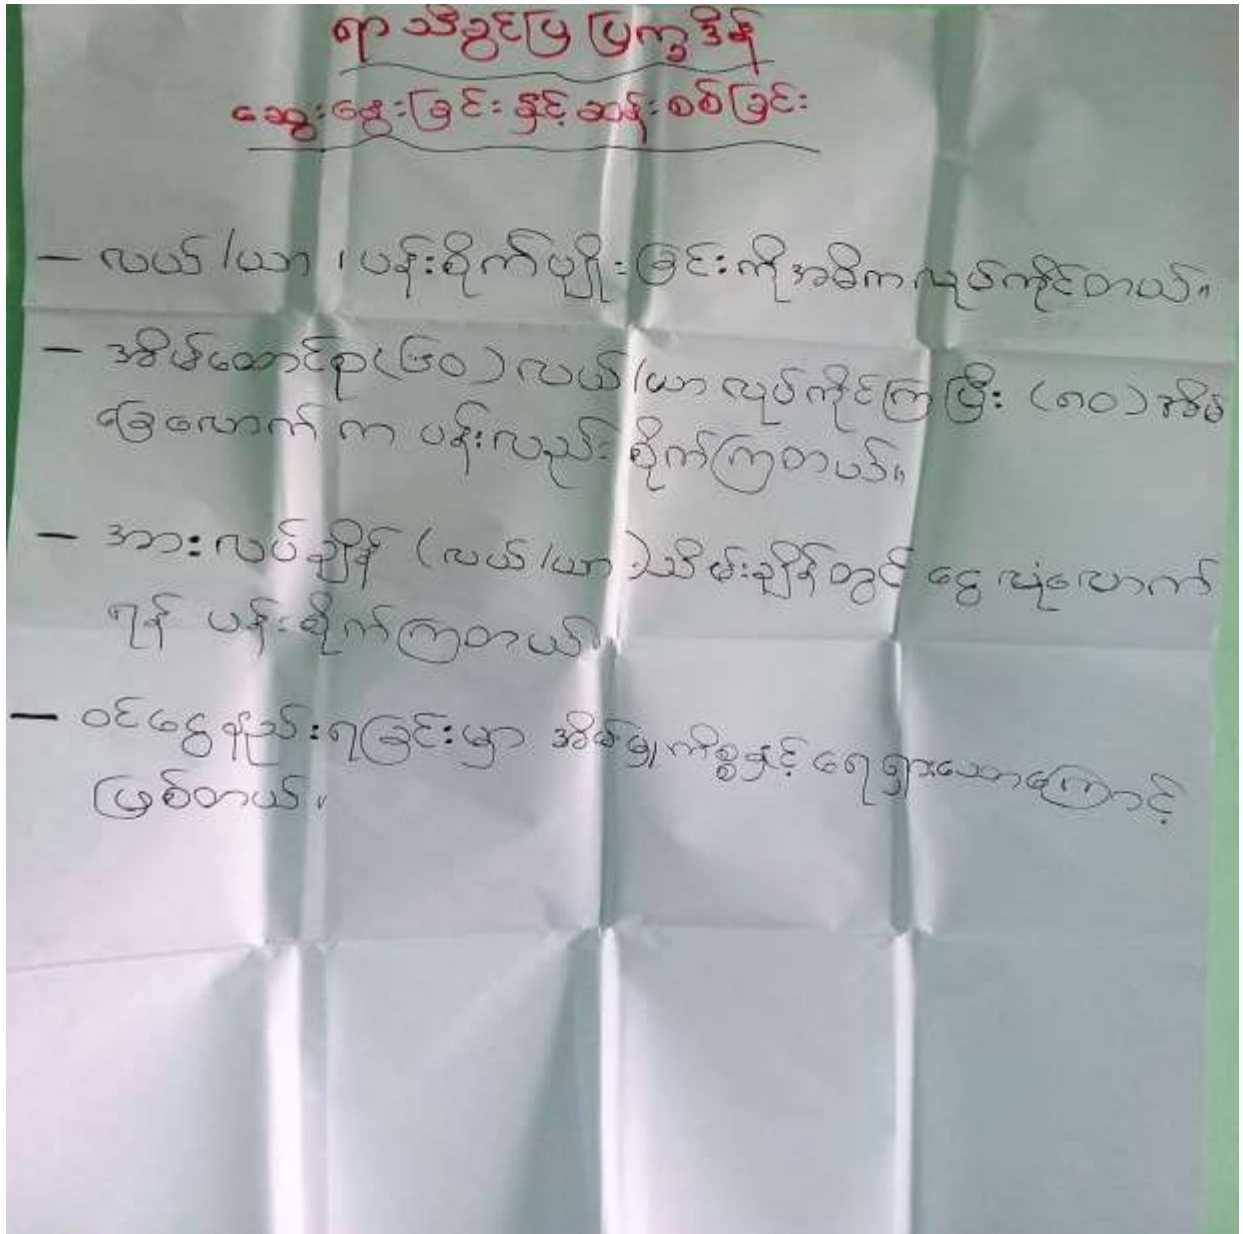 ရာသီခွင်ပြ ပြက္ခဒိန်
ဆွေးနွေးခြင်းနှင့်ဆန်းစစ်ခြင်း
– လယ်/ယာ၊ ပန်းစိုက်ပျိုးခြင်းကိုအဓိကလုပ်ကိုင်တယ်။
– အိမ်ထောင်စု(၆၀) လယ်/ယာ လုပ်ကိုင်ကြပြီး (၈၀)အိမ်
ခြေလောက် က ပန်းလည်းစိုက်ကြတယ်။
– အားလပ်ချိန် (လယ်/ယာ)သိမ်းချိန်တွင် ငွေလုံလောက်
ရန် ပန်းစိုက်ကြတယ်။
– ဝင်ငွေနည်းရခြင်းမှာ အိမ်မှုကိစ္စနှင့် ရေရှားသောကြောင့်
ဖြစ်တယ်။